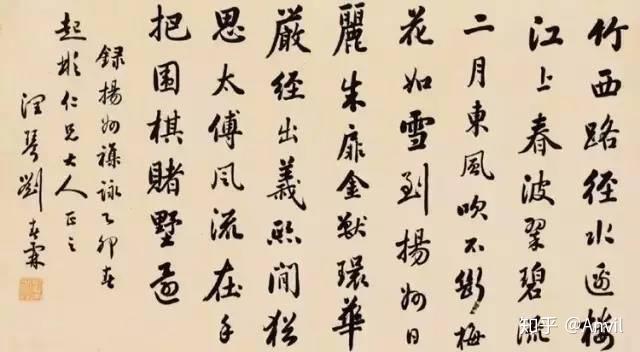 竹西路径水邊楼
江上春波翠碧流
二月東風吹不斷梅
花如雪到揚州日
麗朱扉金獸環華
嚴経出義熙間猶
思太傅風流在手
把围棋賭墅還
録揚州襍詠乙卯春
起彬仁兄大人正之
润琴劉春霖
知乎 @Anvil